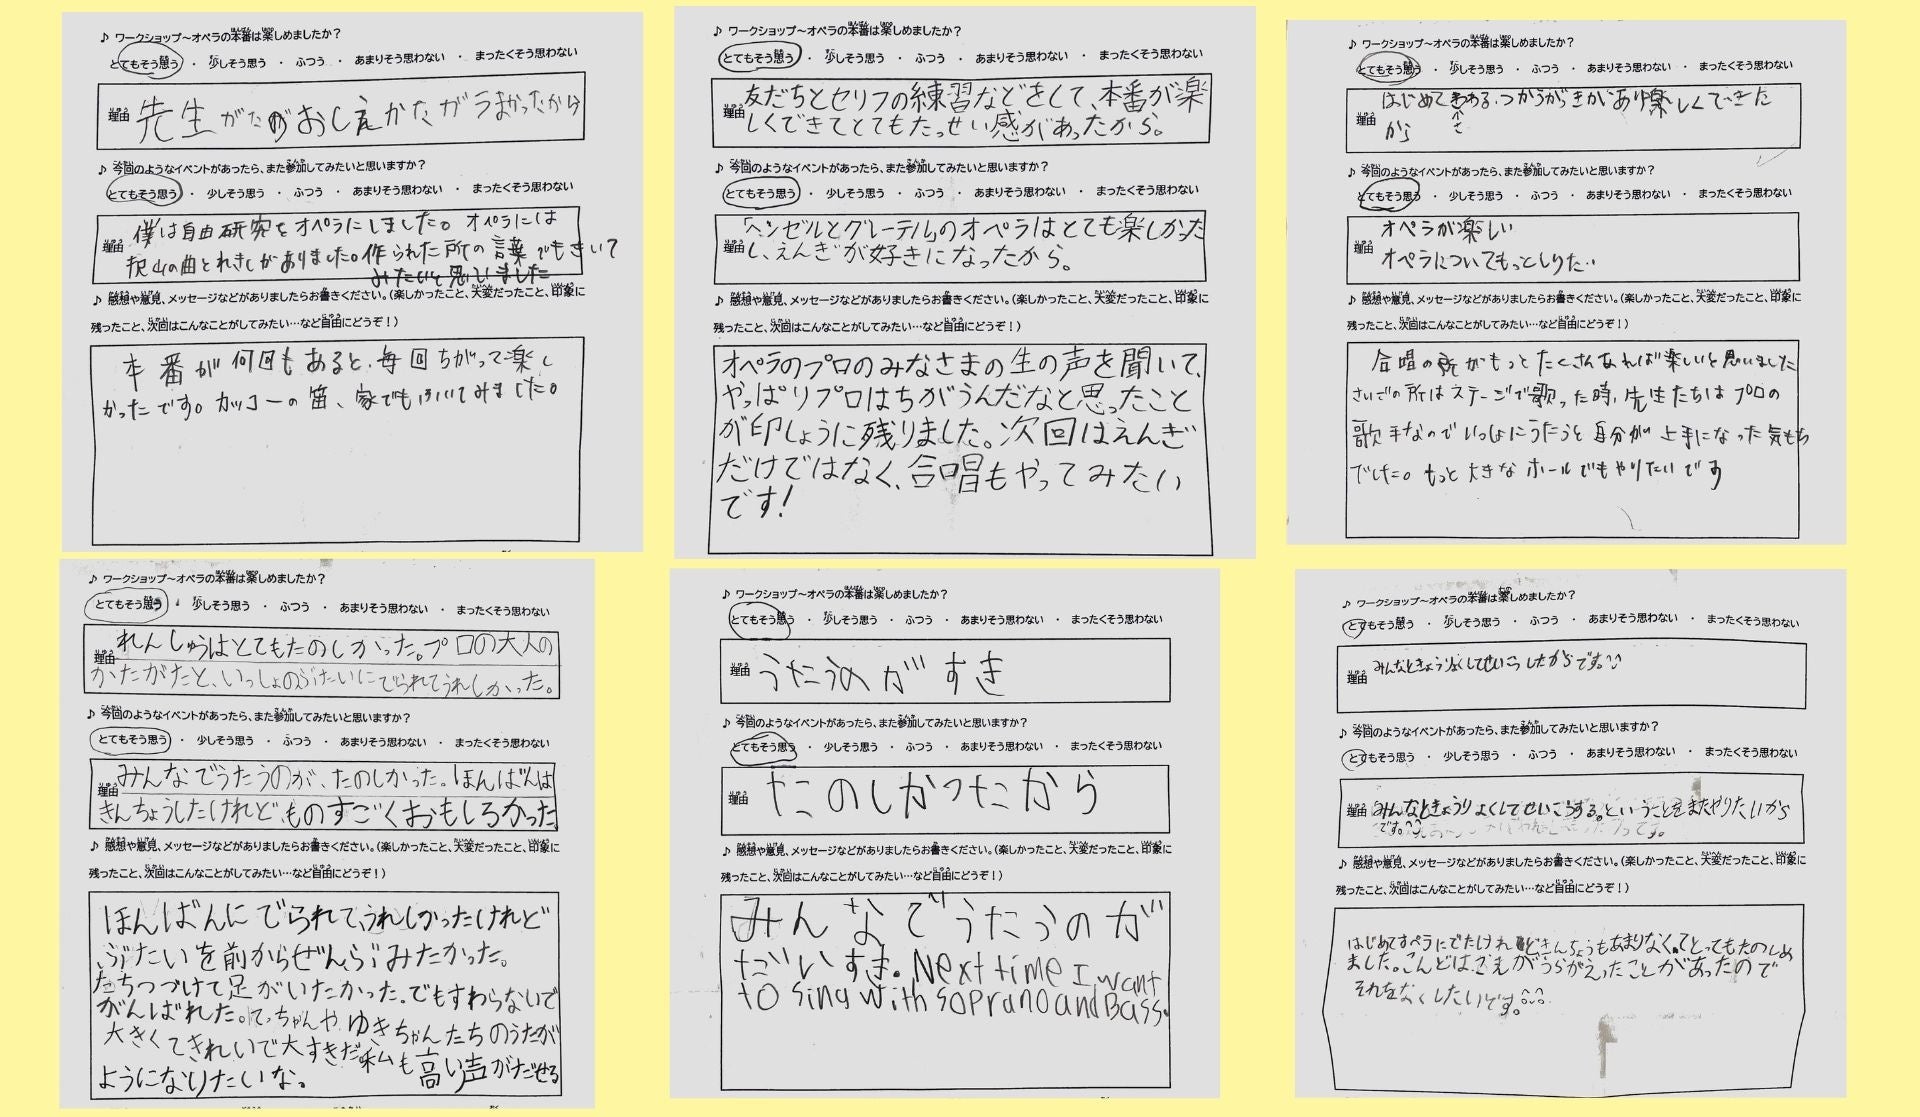 ♪ ワークショップ～オペラの本番は楽しめましたか？
とてもそう思う ・ 少しそう思う ・ ふつう ・ あまりそう思わない ・ まったくそう思わない
理由 先生がたのおしえかたがうまかったから
♪ 今回のようなイベントがあったら、また参加してみたいと思いますか？
とてもそう思う ・ 少しそう思う ・ ふつう ・ あまりそう思わない ・ まったくそう思わない
僕は自由研究をオペラにしました。オペラには
理由 沢山の曲とれきしがありました。作られた所の言葉でもきいて
みたいと思いました
♪ 感想や意見、メッセージなどがありましたらお書きください。（楽しかったこと、大変だったこと、印象に
残ったこと、次回はこんなことがしてみたい…など自由にどうぞ！）
本番が何回もあると、毎回ちがって楽し
かったです。カッコーの笛、家でもふいてみました。
♪ ワークショップ～オペラの本番は楽しめましたか？
とてもそう思う ・ 少しそう思う ・ ふつう ・ あまりそう思わない ・ まったくそう思わない
友だちとセリフの練習などをして、本番が楽
理由 しくできてとてもたっせい感があったから。
♪ 今回のようなイベントがあったら、また参加してみたいと思いますか？
とてもそう思う ・ 少しそう思う ・ ふつう ・ あまりそう思わない ・ まったくそう思わない
「ヘンゼルとグレーテル」のオペラはとても楽しかった
理由 し、えんぎが好きになったから。
♪ 感想や意見、メッセージなどがありましたらお書きください。（楽しかったこと、大変だったこと、印象に
残ったこと、次回はこんなことがしてみたい…など自由にどうぞ！）
オペラのプロのみなさまの生の声を聞いて、
やっぱりプロはちがうんだなと思ったこと
が印しょうに残りました。次回はえんぎ
だけではなく、合唱もやってみたい
です！
♪ ワークショップ～オペラの本番は楽しめましたか？
とてもそう思う ・ 少しそう思う ・ ふつう ・ あまりそう思わない ・ まったくそう思わない
はじめて つかうがっきがあり楽しくできた
理由 から
♪ 今回のようなイベントがあったら、また参加してみたいと思いますか？
とてもそう思う ・ 少しそう思う ・ ふつう ・ あまりそう思わない ・ まったくそう思わない
オペラが楽しい
理由 オペラについてもっとしりたい
♪ 感想や意見、メッセージなどがありましたらお書きください。（楽しかったこと、大変だったこと、印象に
残ったこと、次回はこんなことがしてみたい…など自由にどうぞ！）
合唱の所がもっとたくさんあれば楽しいと思いました
さいごの所はステージで歌った時、先生たちはプロの
歌手なのでいっしょにうたうと自分が上手になった気もち
でした。もっと大きなホールでもやりたいです
♪ ワークショップ～オペラの本番は楽しめましたか？
とてもそう思う ・ 少しそう思う ・ ふつう ・ あまりそう思わない ・ まったくそう思わない
れんしゅうはとてもたのしかった。プロの大人の
理由 かたがたと、いっしょのぶたいにでられてうれしかった。
♪ 今回のようなイベントがあったら、また参加してみたいと思いますか？
とてもそう思う ・ 少しそう思う ・ ふつう ・ あまりそう思わない ・ まったくそう思わない
みんなでうたうのが、たのしかった。ほんばんは
理由 きんちょうしたけれど、ものすごくおもしろかった
♪ 感想や意見、メッセージなどがありましたらお書きください。（楽しかったこと、大変だったこと、印象に
残ったこと、次回はこんなことがしてみたい…など自由にどうぞ！）
ほんばんにでられて、うれしかったけれど
ぶたいを前からぜんぶみたかった。
たちつづけて足がいたかった。でもすわらないで
がんばれた。てっちゃんやゆきちゃんたちのうたが
大きくてきれいで大すきだ私も高い声がだせる
ようになりたいな。
♪ ワークショップ～オペラの本番は楽しめましたか？
とてもそう思う ・ 少しそう思う ・ ふつう ・ あまりそう思わない ・ まったくそう思わない
理由 うたうのがすき
♪ 今回のようなイベントがあったら、また参加してみたいと思いますか？
とてもそう思う ・ 少しそう思う ・ ふつう ・ あまりそう思わない ・ まったくそう思わない
理由 たのしかったから
♪ 感想や意見、メッセージなどがありましたらお書きください。（楽しかったこと、大変だったこと、印象に
残ったこと、次回はこんなことがしてみたい…など自由にどうぞ！）
みんなでうたうのが
だいすき。Next time I want
to sing with soprano and Bass.
♪ ワークショップ～オペラの本番は楽しめましたか？
とてもそう思う ・ 少しそう思う ・ ふつう ・ あまりそう思わない ・ まったくそう思わない
理由 みんなときょうりょくしてせいこうしたからです。
♪ 今回のようなイベントがあったら、また参加してみたいと思いますか？
とてもそう思う ・ 少しそう思う ・ ふつう ・ あまりそう思わない ・ まったくそう思わない
理由 みんなときょうりょくしてせいこうする。ということをまたやりたいから
です。
♪ 感想や意見、メッセージなどがありましたらお書きください。（楽しかったこと、大変だったこと、印象に
残ったこと、次回はこんなことがしてみたい…など自由にどうぞ！）
はじめてオペラにでたけれどきんちょうもあまりなく。てとってもたのしめ
ました。こんどはこえがうらがえったことがあったので
それをなくしたいです。